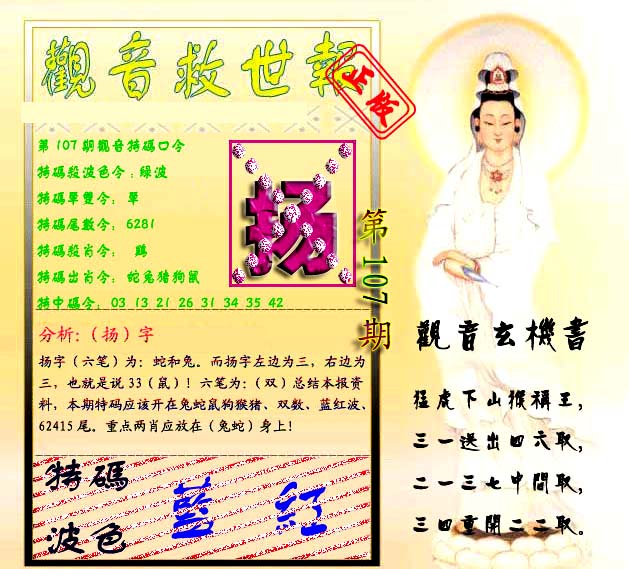 觀音救世報
正版
第107期觀音特碼口令
特碼殺波色令:綠波
特碼單雙令: 單
特碼尾數令: 6281
特碼殺肖令: 鷄
特碼出肖令: 蛇兔猪狗鼠
特中碼令: 03 13 21 26 31 34 35 42
扬
第107期
分析:(扬)字
扬字(六笔)为: 蛇和兔。而扬字左边为三, 右边为
三, 也就是说33(鼠)! 六笔为:(双)总结本报资
料, 本期特码应该开在兔蛇鼠狗猴猪、双数、蓝红波、
62415尾。重点两肖应放在(兔蛇)身上!
特碼
波色
藍 紅
觀音玄機書
猛虎下山猴稱王,
三一送出四六取,
二一三七中間取,
三四重開二二取。